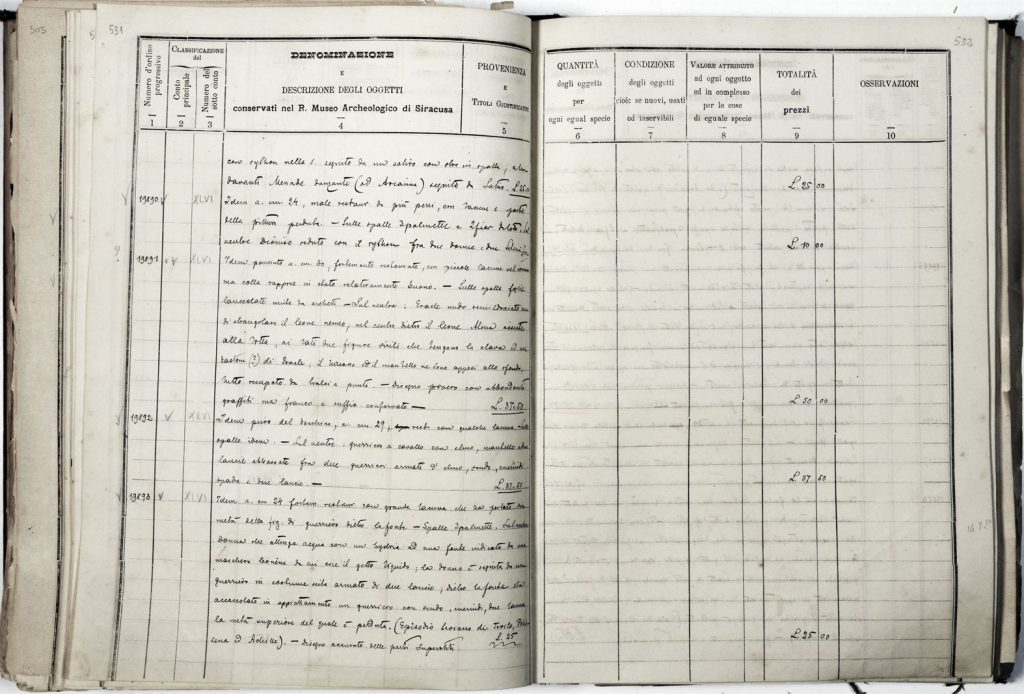 505
531
Numero d'ordine progressivo
CLASSIFICAZIONE del
Conto principale
Numero del sotto conto
DENOMINAZIONE
E
DESCRIZIONE DEGLI OGGETTI
conservati nel R. Museo Archeologico di Siracusa
PROVENIENZA
E
TITOLI GIUSTIFICATIVI
1 2 3 4 5
con rython nella s. seguito da un satiro con otre in spalla,
davanti Menade danzante (ad Arianna) seguito da Satiro. L. 25.00
19890 V XLVI Idem a. cm 24, male restaur. da più pezzi, con lacune e parte
della pittura perduta. – Sulle spalle palmette e
ventre Dioniso seduto con il rython fra due donne e due
19891 XLVI Idem panciuta a. cm. 30, fortemente restaurata, con piccole lacune nel
ma colla rappres. in stato relativamente buono. – Sulle spalle foglie
lanceolate unite da archetti – Sul ventre: Eracle nudo
di strangolare il leone nemeo; nel centro dietro il leone Atena assiste
alla lotta, ai lati due figure virili che tengono la clava ed un
bastone (?) di Eracle, il turcasso ed il mantello ne sono appesi allo sfondo,
tutto occupato da tralci a punti. – Disegno povero con abbondanti
graffiti ma franco e suffic. conservato – L. 37.50
19892 V XLVI Idem a. cm. 29, restr. con qualche lacuna
spalle idem. – Sul ventre: guerriero a cavallo con elmo, mantello e
lancie abbassate fra due guerrieri armati d' elmo, scudo, cnemidi
spada e due lancie. – L. 37.50
19893 V XLVI Idem a. cm 24 fortem. restaur. con grande lacuna che ha portato via
metà della fig. di guerriero dietro la fonte – Spalle palmette. Sul ventre
donna che attinge acqua con un hydria ad una fonte indicata da una
maschera leonina da cui esce il getto liquido; la donna è seguita da un
guerriero in costume scita armato di due lancie, dietro la fonte sta
accoccolato in appiattamento un guerriero con scudo, cnemidi, due lancie
la metà superiore del quale è perduta. (Episodio troiano di Troilo,
sena ed Achille). – Disegno accurato delle parti superstiti. L. 25
532
QUANTITÀ
degli oggetti
per
ogni egual specie
CONDIZIONE
degli oggetti
cioè: se nuovi, usati
od inservibili
VALORE ATTRIBUITO
ad ogni oggetto
ed in complesso
per le cose
di eguale specie
TOTALITÀ
dei
prezzi
OSSERVAZIONI
6 7 8 9 10
L. 25 00
L. 10 00
L. 50 00
L. 37 50
L. 25 00